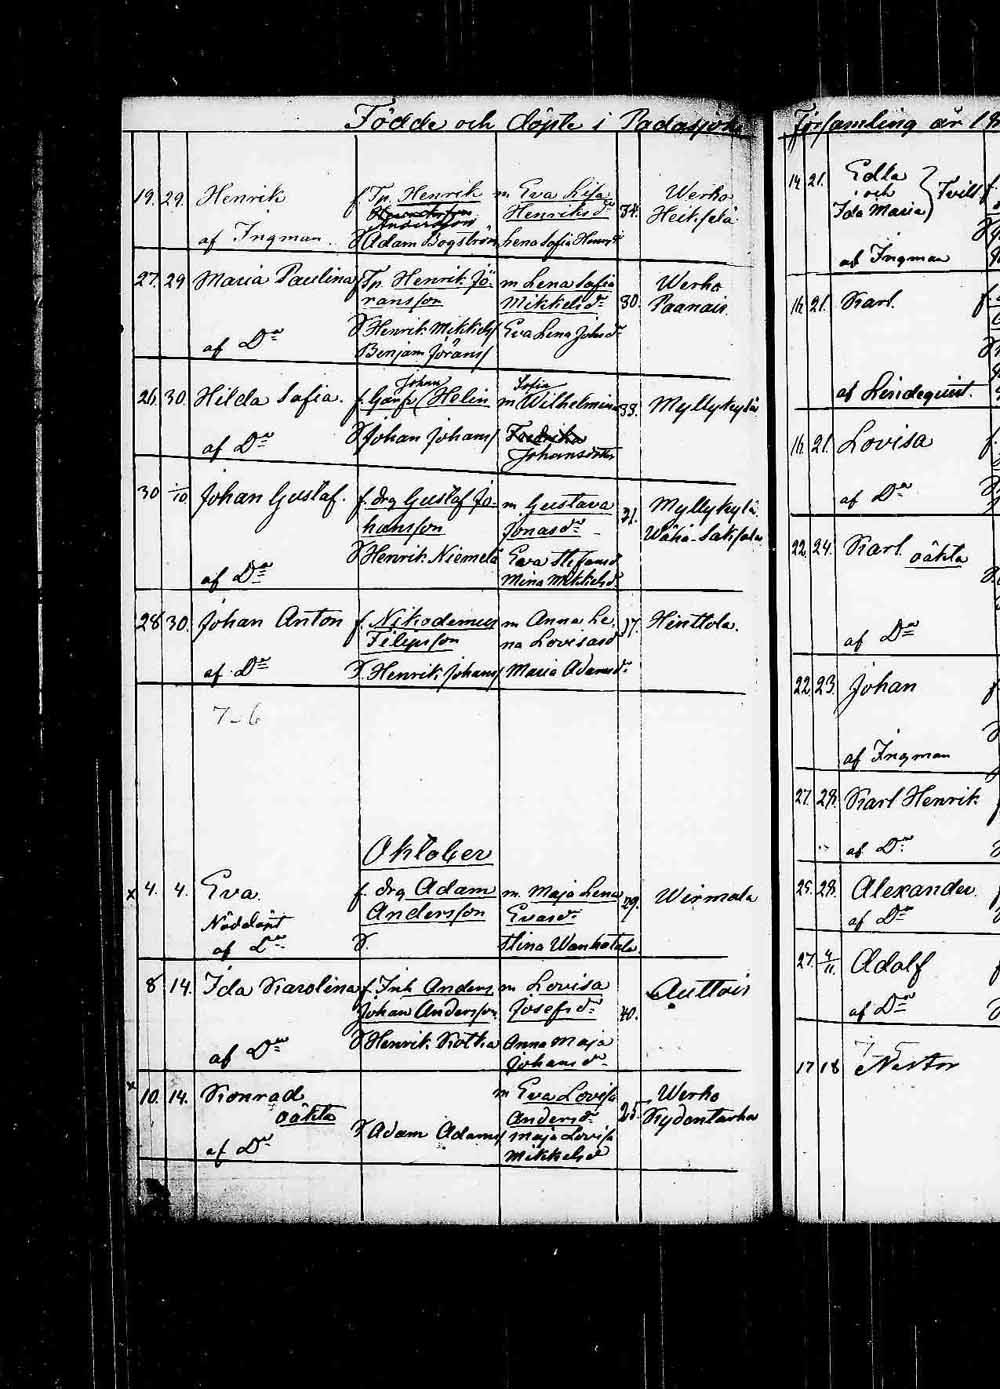 Födde och döpte i Padasjoki
19. 29. Henrik f. Tp. Henrik m Eva Lisa 34. Werho
Andersson Henriksdr Heikkilä
af Ingman. F Adam Bogström Lena Sofia Henrdr
27. 29 Maria Paulina f Tp. Henrik Jö- m Lena Sofia 30. Werho
ransson Mikkelsdr Paanais.
F Henrik Mikkels Eva Lena Johsdr
af Do Benjam Jörans
26. 30. Hilda Sofia. f. Johan Helin m Sofia Wilhelmina 33. Myllykylä
af Do F Johan Johans Fredrika
Johansdotter
30 1/10 Johan Gustaf. f. drg Gustaf Jo- m Gustava 31. Myllykylä
hansson Jonasdr Wähä-
F Henrik Niemelä Eva Stefansd
af Do Mina Mikkelsd.
28 30. Johan Anton f. Nikodemus m Anna Le- 37. Hinttola.
Filipsson na Lovisasd
af Do F. Henrik Johans Maria Adamsd.
7-6
Oktober
x 4. 4. Eva. f. drg Adam m. Maja Lena 29. Wirmala
Nöddöpt Andersson Evasdr
af Do F. Stina Wanhatalo
8 14. Ida Karolina f. Inh Anders m Lovisa 40. Auttois
Johan Andersson Josefsdr
F Henrik Kotka Anna Maja
af Do Johansdr
x 10. 14. Konrad m Eva Lovisa 25. Werho
oäkta Andersdr Kydentaka
F Adam Adams Maja Lovisa
af Do Mikkelsd
Församling år 18
14 21. Edla
och } Tvill f
Ida Maria
af Ingman
16. 21. Karl. f.
af Lindequist.
16. 21. Lovisa
af Do
22. 24. Karl.
oäkta
af Do
22. 23. Johan
af Ingman
27. 28. Karl Henrik
af Do
25. 28. Alexander.
af Do
27. 4/11. Adolf
af Do
7-5
17 18 Nestor